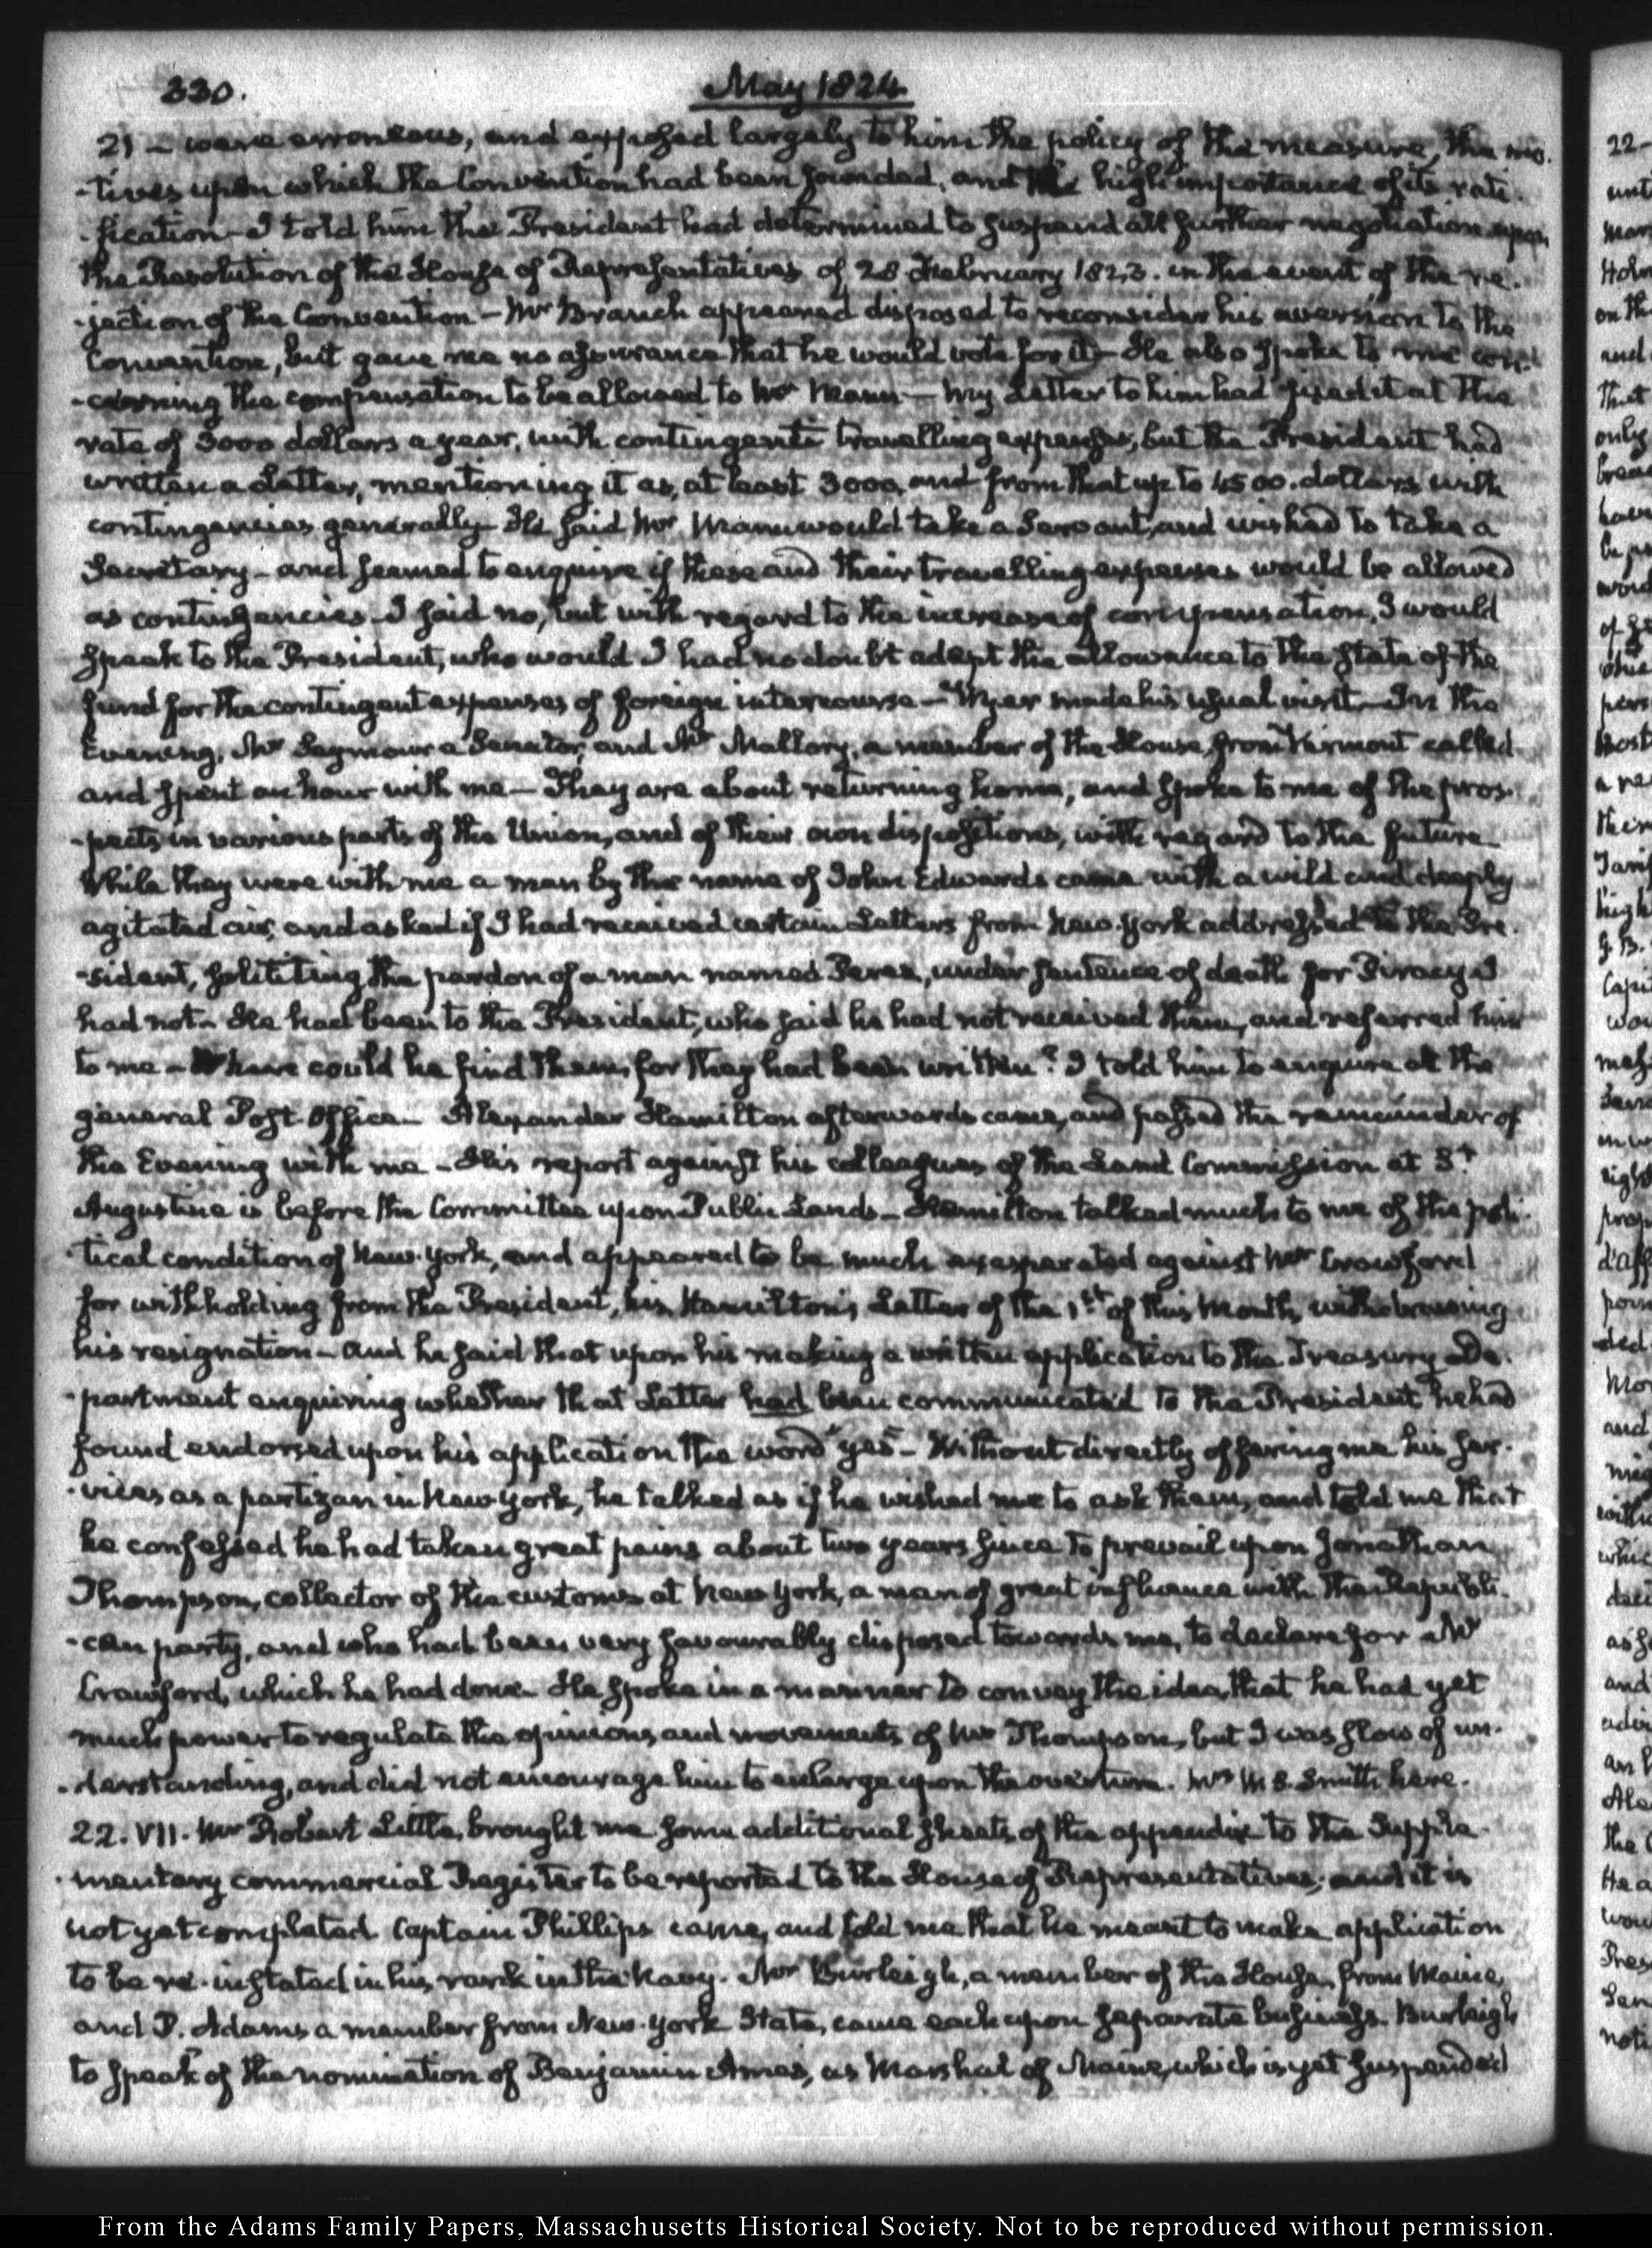 330.
May 1824
21 - were erroneous, and exposed largely to him the policy of the measure, the mo-
-tives upon which the Convention had been founded, and the high importance of its rati-
-fication - I told him the President had determined to suspend all further negotiation upon
the Resolution of the House of Representatives of 28 February 1823. in the event of the re-
-jection of the Convention - Mr Branch appeared disposed to reconsider his aversion to the
Convention, but gave me no assurance that he would vote for it - He also spoke to me con-
-cerning the compensation to be allowed to Mr Mann - My Letter to him had fixed it at the
rate of 3000 dollars a year, with contingent travelling expenses, but the President had
written a Letter, mentioning it as, at least 3000, and from that up to 4500. dollars with
contingencies generally - He said Mr Mann would take a Servant, and wished to take a
Secretary - and seemed to enquire if these and their travelling expenses would be allowed
as contingencies - I said no, but with regard to the increase of compensation, I would
speak to the President, who would I had no doubt adapt the allowance to the state of the
fund for the contingent expenses of foreign intercourse - Wyer made his usual visit - In the
Evening, Mr Seymour a Senator, and Mr Mallary, a member of the House, from Vermont called
and spent an hour with me - They are about returning home, and spoke to me of the pros-
-pects in various parts of the Union, and of their own dispositions, with regard to the future
While they were with me a man by the name of John Edwards came with a wild and deeply
agitated air, and asked if I had received certain Letters from New-York addressed to the Pre-
-sident, soliciting the pardon of a man named Perez, under sentence of death for Piracy - I
had not - He had been to the President, who said he had not received them, and referred him
to me - Where could he find them, for they had been written? I told him to enquire at the
general Post-Office - Alexander Hamilton afterwards came, and passed the remainder of
the Evening with me - His report against his colleagues of the Land Commission at St
Augustine is before the Committee upon Public Lands - Hamilton talked much to me of the poli-
-tical condition of New-York, and appeared to be much exasperated against Mr Crawford
for withholding from the President, his, Hamilton's, Letter of the 1st of this Month, withdrawing
his resignation - and he said that upon his making a written application to the Treasury De-
-partment enquiring whether that Letter had been communicated to the President he had
found endorsed upon his application the word "yes" - Without directly offering me his ser-
-vices as a partizan in New-York, he talked as if he wished me to ask them, and told me that
he confessed he had taken great pains about two years since to prevail upon Jonathan
Thompson, collector of the customs at New York, a man of great influence with the Republi-
-can party, and who had been very favourably disposed towards me, to declare for Mr
Crawford, which he had done - He spoke in a manner to convey the idea, that he had yet
much power to regulate the opinions and movements of Mr Thompson, but I was slow of un-
-derstanding, and did not encourage him to enlarge upon the overture. Mrs M B. Smith here.
22. VII. Mr Robert Little, brought me some additional sheets of the appendix to the Supple-
-mentary commercial Register to be reported to the House of Representatives; and it is
not yet completed Captain Phillips came, and told me that he meant to make application
to be re-instated in his rank in the Navy. Mr Burleigh, a member of the House, from Maine,
and P. Adams a member from New-York State, came each upon separate business. Burleigh
to speak of the nomination of Benjamin Ames, as Marshal of Maine, which is yet suspended
22-
From the Adams Family Papers, Massachusetts Historical Society. Not to be reproduced without permission.